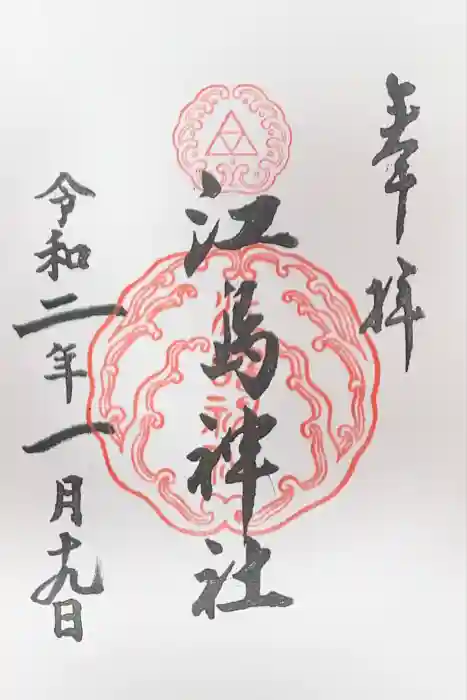 奉拝
江島神社
令和二年一月十九日